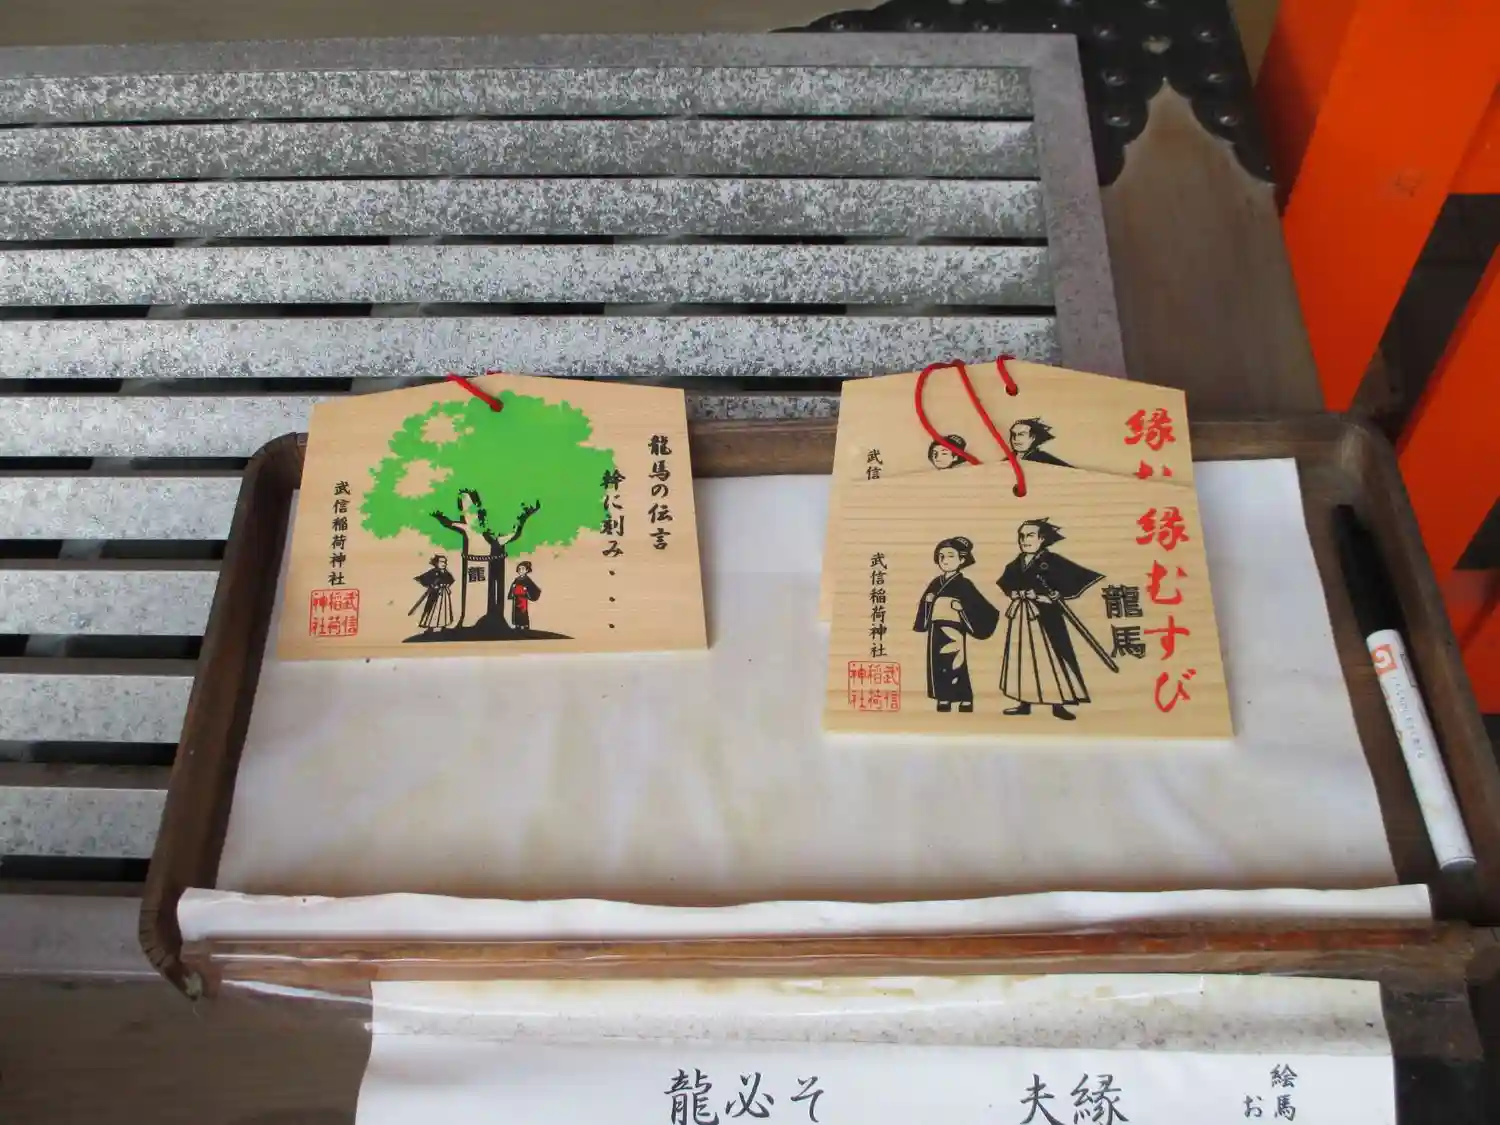 龍馬の伝言
幹に刻み・・・
龍
武信稲荷神社
武信稲荷神社
縁
武信
縁むすび
龍馬
武信稲荷神社
武信稲荷神社
絵馬
お
縁
夫
そ
必
龍